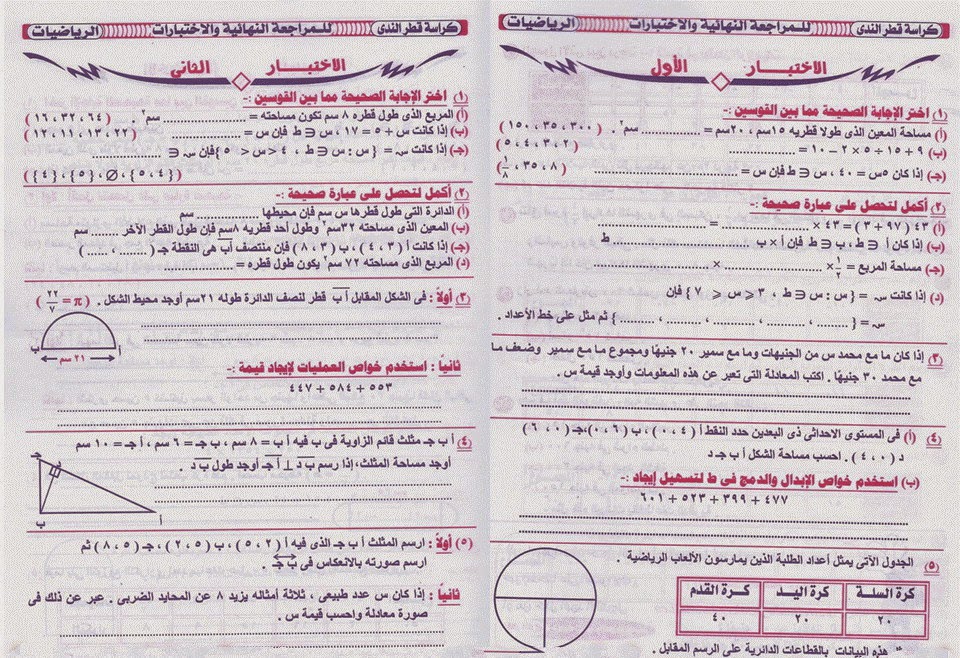 كراسة قطر الندى للمراجعة النهائية والاختبارات الرياضيات
الاختبار الأول
(١) اختر الإجابة الصحيحة مما بين القوسين :-
(أ) مساحة المعين الذى طولا قطريه ١٥سم ، ٢٠سم = .......... سم٢ . ( ٣٠٠ ، ٣٥ ، ١٥٠ )
(ب) ٩ + ١٥ ÷ ٥ × ٢ - ١٠ = .......... ( ٢ ، ٣ ، ٤ ، ٥ )
(جـ) إذا كان ٥س = ٤٠ ، س ∈ ط فإن س = .......... ( ٨ ، ٣٥ ، ١/٨ )
(٢) أكمل لتحصل على عبارة صحيحة :-
(أ) ٤٣ ( ٩٧ + ٣ ) = ٤٣ × .......... = ..........
(ب) إذا كان أ ∈ ط ، ب ∈ ط فإن أ × ب .......... ط
(جـ) مساحة المربع = ١/٢ × .......... × ..........
(د) إذا كانت س = { س : س ∈ ط ، ٣ ⩽ س < ٧ } فإن
س = { ........ ، ........ ، ........ ، ........ } ثم مثل على خط الأعداد .
(٣) إذا كان ما مع محمد س من الجنيهات وما مع سمير ٢٠ جنيهًا ومجموع ما مع سمير وضعف ما
مع محمد ٣٠ جنيهًا . اكتب المعادلة التى تعبر عن هذه المعلومات وأوجد قيمة س .
(٤) (أ) فى المستوى الاحداثى ذى البعدين حدد النقط أ ( ٤ ، ٠ ) ، ب ( ٦ ، ٠ ) ، جـ ( ٠ ، ٦ )
د ( ٠ ، ٤ ) . احسب مساحة الشكل أ ب جـ د
(ب) استخدم خواص الإبدال والدمج فى ط لتسهيل إيجاد :-
٤٧٧ + ٣٩٩ + ٥٢٣ + ٦٠١
(٥) الجدول الآتى يمثل أعداد الطلبة الذين يمارسون الألعاب الرياضية .
كرة السلة كرة اليد كرة القدم
٢٠ ٢٠ ٤٠
هذه البيانات بالقطاعات الدائرية على الرسم المقابل .
كراسة قطر الندى للمراجعة النهائية والاختبارات الرياضيات
الاختبار الثانى
(١) اختر الإجابة الصحيحة مما بين القوسين :-
(أ) المربع الذى طول قطره ٨ سم تكون مساحته = .......... سم٢ ( ٦٤ ، ٣٢ ، ١٦ )
(ب) إذا كانت س + ٥ = ١٧ ، س ∈ ط فإن س = .......... ( ٢٢ ، ١٣ ، ١١ ، ١٢ )
(جـ) إذا كانت س = { س : س ∈ ط ، ٤ < س < ٥ } فإن س ∈
( { ٤ ، ٥ } ، ∅ ، { ٥ } ، { ٤ } )
(٢) أكمل لتحصل على عبارة صحيحة :-
(أ) الدائرة التى طول قطرها س سم فإن محيطها .......... سم
(ب) المعين الذى مساحته ٣٢سم٢ وطول أحد قطريه ٨سم فإن طول القطر الآخر .......... سم
(جـ) إذا كانت أ ( ٣ ، ٤ ) ، ب ( ٣ ، ٨ ) فإن منتصف أب هى النقطة جـ ( ..... ، ..... )
(د) المربع الذى مساحته ٧٢ سم٢ يكون طول قطره = ..........
(٣) أولاً : فى الشكل المقابل أب قطر لنصف الدائرة طوله ٢١سم أوجد محيط الشكل . ( π = ٢٢/٧ )
ب أ
٢١ سم
ثانياً : استخدم خواص العمليات لإيجاد قيمة :-
٥٥٣ + ٥٨٤ + ٤٤٧
(٤) أ ب جـ مثلث قائم الزاوية فى ب فيه أ ب = ٨ سم ، ب جـ = ٦ سم ، أ جـ = ١٠ سم
أوجد مساحة المثلث، إذا رسم ب د ⊥ أ جـ أوجد طول ب د
جـ
د
ب أ
(٥) أولاً : ارسم المثلث أ ب جـ الذى فيه أ ( ٢ ، ٥ ) ، ب ( ٢ ، ٥ ) ، جـ ( ٥ ، ٨ ) ثم
ارسم صورته بالانعكاس فى ب جـ .
ثانياً : إذا كان س عدد طبيعى ، ثلاثة أمثاله يزيد ٨ عن المحايد الضربى . عبر عن ذلك فى
صورة معادلة واحسب قيمة س .